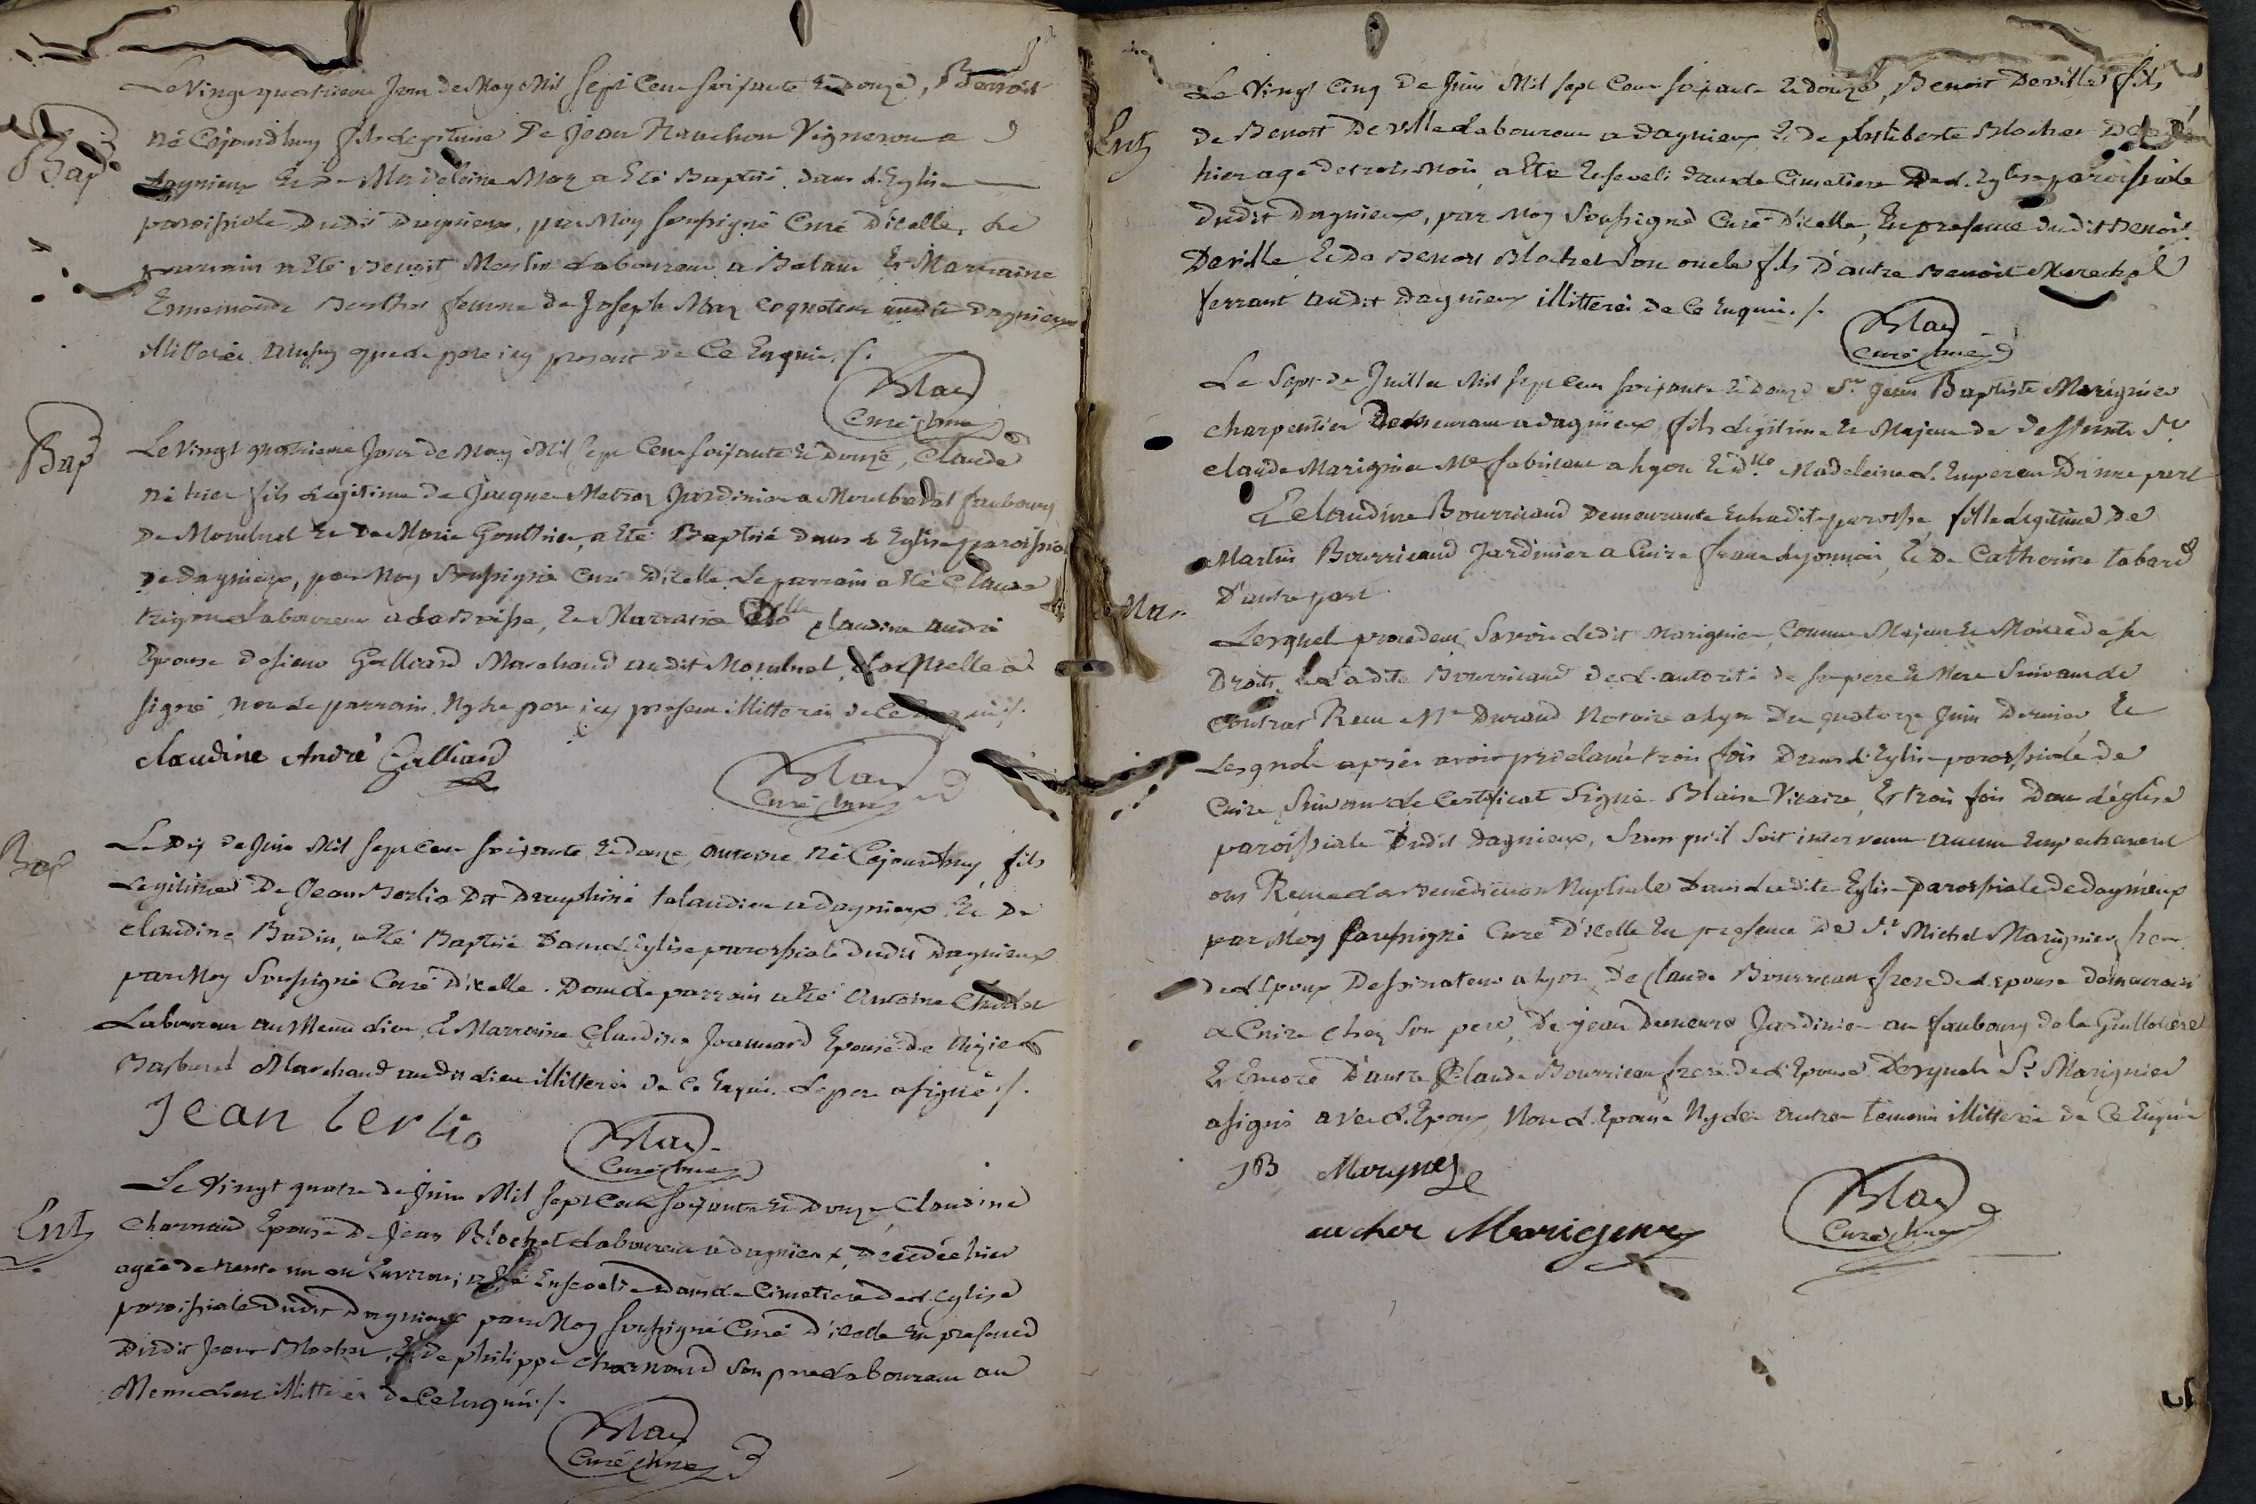 Le Vingt quatrieme Jour de May Mil Sept Cent soixante et douze, Benoit
Bap
né Cejourdhuy fils Legitime De Jean Vigneron a
Dagnieux et De Madeleine Maz a Eté Baptisé dans L'Eglise
paroissiale Dudit Dagnieux, par Moy soussigné Curé D'icelle, Le
parrain a Eté Benoit Merlin Laboureur a Balan Et Marraine
Ennemonde Berthet femme de Joseph Maz coquetier audit Dagnieux
illitterés aussy que Le pere icy present De Ce Enquis ./.
Blan
Curé
Bap
Le Vingt quatrieme Jour de May Mil Sept Cent soixante Et Douze, Claude
né hier fils Legitime de Jacque Metroz Jardinier a Faubourg
De Montluel Et De Marie Gonthier, a Eté Baptisé Dans L'Eglise paroissiale
De Dagnieux, par Moy Soussigné Curé D'icelle Le parrain a Eté Claude
Laboureur a La Boisse, Et Marraine Dlle Claudine André
Epouse De sieur Galliard Marchand audit Montluel, Laquelle a
signé non Le parrain Ny Le pere icy present illitterés de Ce Enquis ./.
claudine André Galliard
Blan
Curé
Bap
Le Dix de Juin Mil Sept Cent soixante Et Douze, antoine né Cejourdhuy fils
Legitime De Jean Berlio Dit Dauphiné a Dagnieux Et De
Claudine Budin, a Eté Baptisé Dans L'Eglise paroissiale dudit Dagnieux
par Moy Soussigné Curé D'icelle. Dont Le parrain a Eté Antoine
Laboureur au Meme Lieu, Et Marraine Claudine Jouanard Epouse de
Marchand audit Lieu illitterés de Ce Enquis. Le pere a signé ./.
Jean berlio
Blan
Curé
Ent
Le Vingt quatre de Juin Mil Sept Cent soixante Et Douze, Claudine
Charnaud Epouse De Jean Blochet Laboureur a Dagnieux, Decedée hier
agée de trente un an Environ, a Eté Ensevelie Dans Le Cimetiere De L'Eglise
paroissiale Dudit Dagnieux par Moy soussigné Curé D'icelle En presence
Dudit Jean Blochet, Et De philippe Charnaud son pere Laboureur au
Meme Lieu illitterés de Ce Enquis ./.
Blan
Curé
Le Vingt Cinq de Juin Mil Sept Cent soixante Et douze, Benoit Deville fils
Ent
de Benoit Deville Laboureur a dagnieux Et de Blochet
hier agé de trois mois, a Eté Enseveli dans Le Cimetiere De L'Eglise paroissiale
Dudit Dagnieux, par Moy Soussigné Curé D'icelle, En presence dudit Benoit
Deville, Et De Benoit Blochet Son oncle fils D'autre Benoit Marechal
ferrant audit Dagnieux illitterés de Ce Enquis ./.
Blan
Curé
Le Sept de Juillet Mil Sept Cent soixante Et Douze Sr Jean Baptiste Marignier
charpentier Demeurant a dagnieux, fils Legitime Et Majeur de Deffunts Sr
claude Marignier Me fabricant a Lyon Et Dlle Madeleine L'Empereur D'une part
Et Claudine Bourricaud Demeurante En Ladite paroisse fille Legitime De
Martin Bourricaud Jardinier a Cuire franc Lyonnois, Et De Catherine tabard
Mar
D'autre part
Lesquels procedent Savoir Ledit Marignier Comme Majeur Et Maitre de Ses
Droits, Et Ladite Bourricaud De L'autorité de Ses pere Et Mere Suivant Le
Contrat Recu Me Durand Notaire a Lyon Du quatorze Juin Dernier, Et
Lesquels après avoir proclamé trois fois Dans L'Eglise paroissiale de
Cuire, Suivant Le Certificat Signé Blaise Vicaire, Et trois fois Dans L'église
paroissiale Dudit Dagnieux, Sans qu'il Soit intervenu aucun Empechement
ont Recu La Benediction Nuptiale Dans Ladite Eglise paroissiale de dagnieux
par Moy Soussigné Curé D'icelle En presence De Sr Michel Marignier frere
de L'Epoux Dessinateur a Lyon, De Claude Bourricau frere de L'Epouse demeurant
a Cuire Chez Son pere, De jean Jardinier au faubourg de la Guillotiere
Et Encore D'autre Claude Bourricau frere De L'Epouse Desquels Sr Marignier
a signé avec L'Epoux, Non L'Epouse Ny Les autres temoins illitterés de Ce Enquis
JB Marignier
Marignier
Blan
Curé